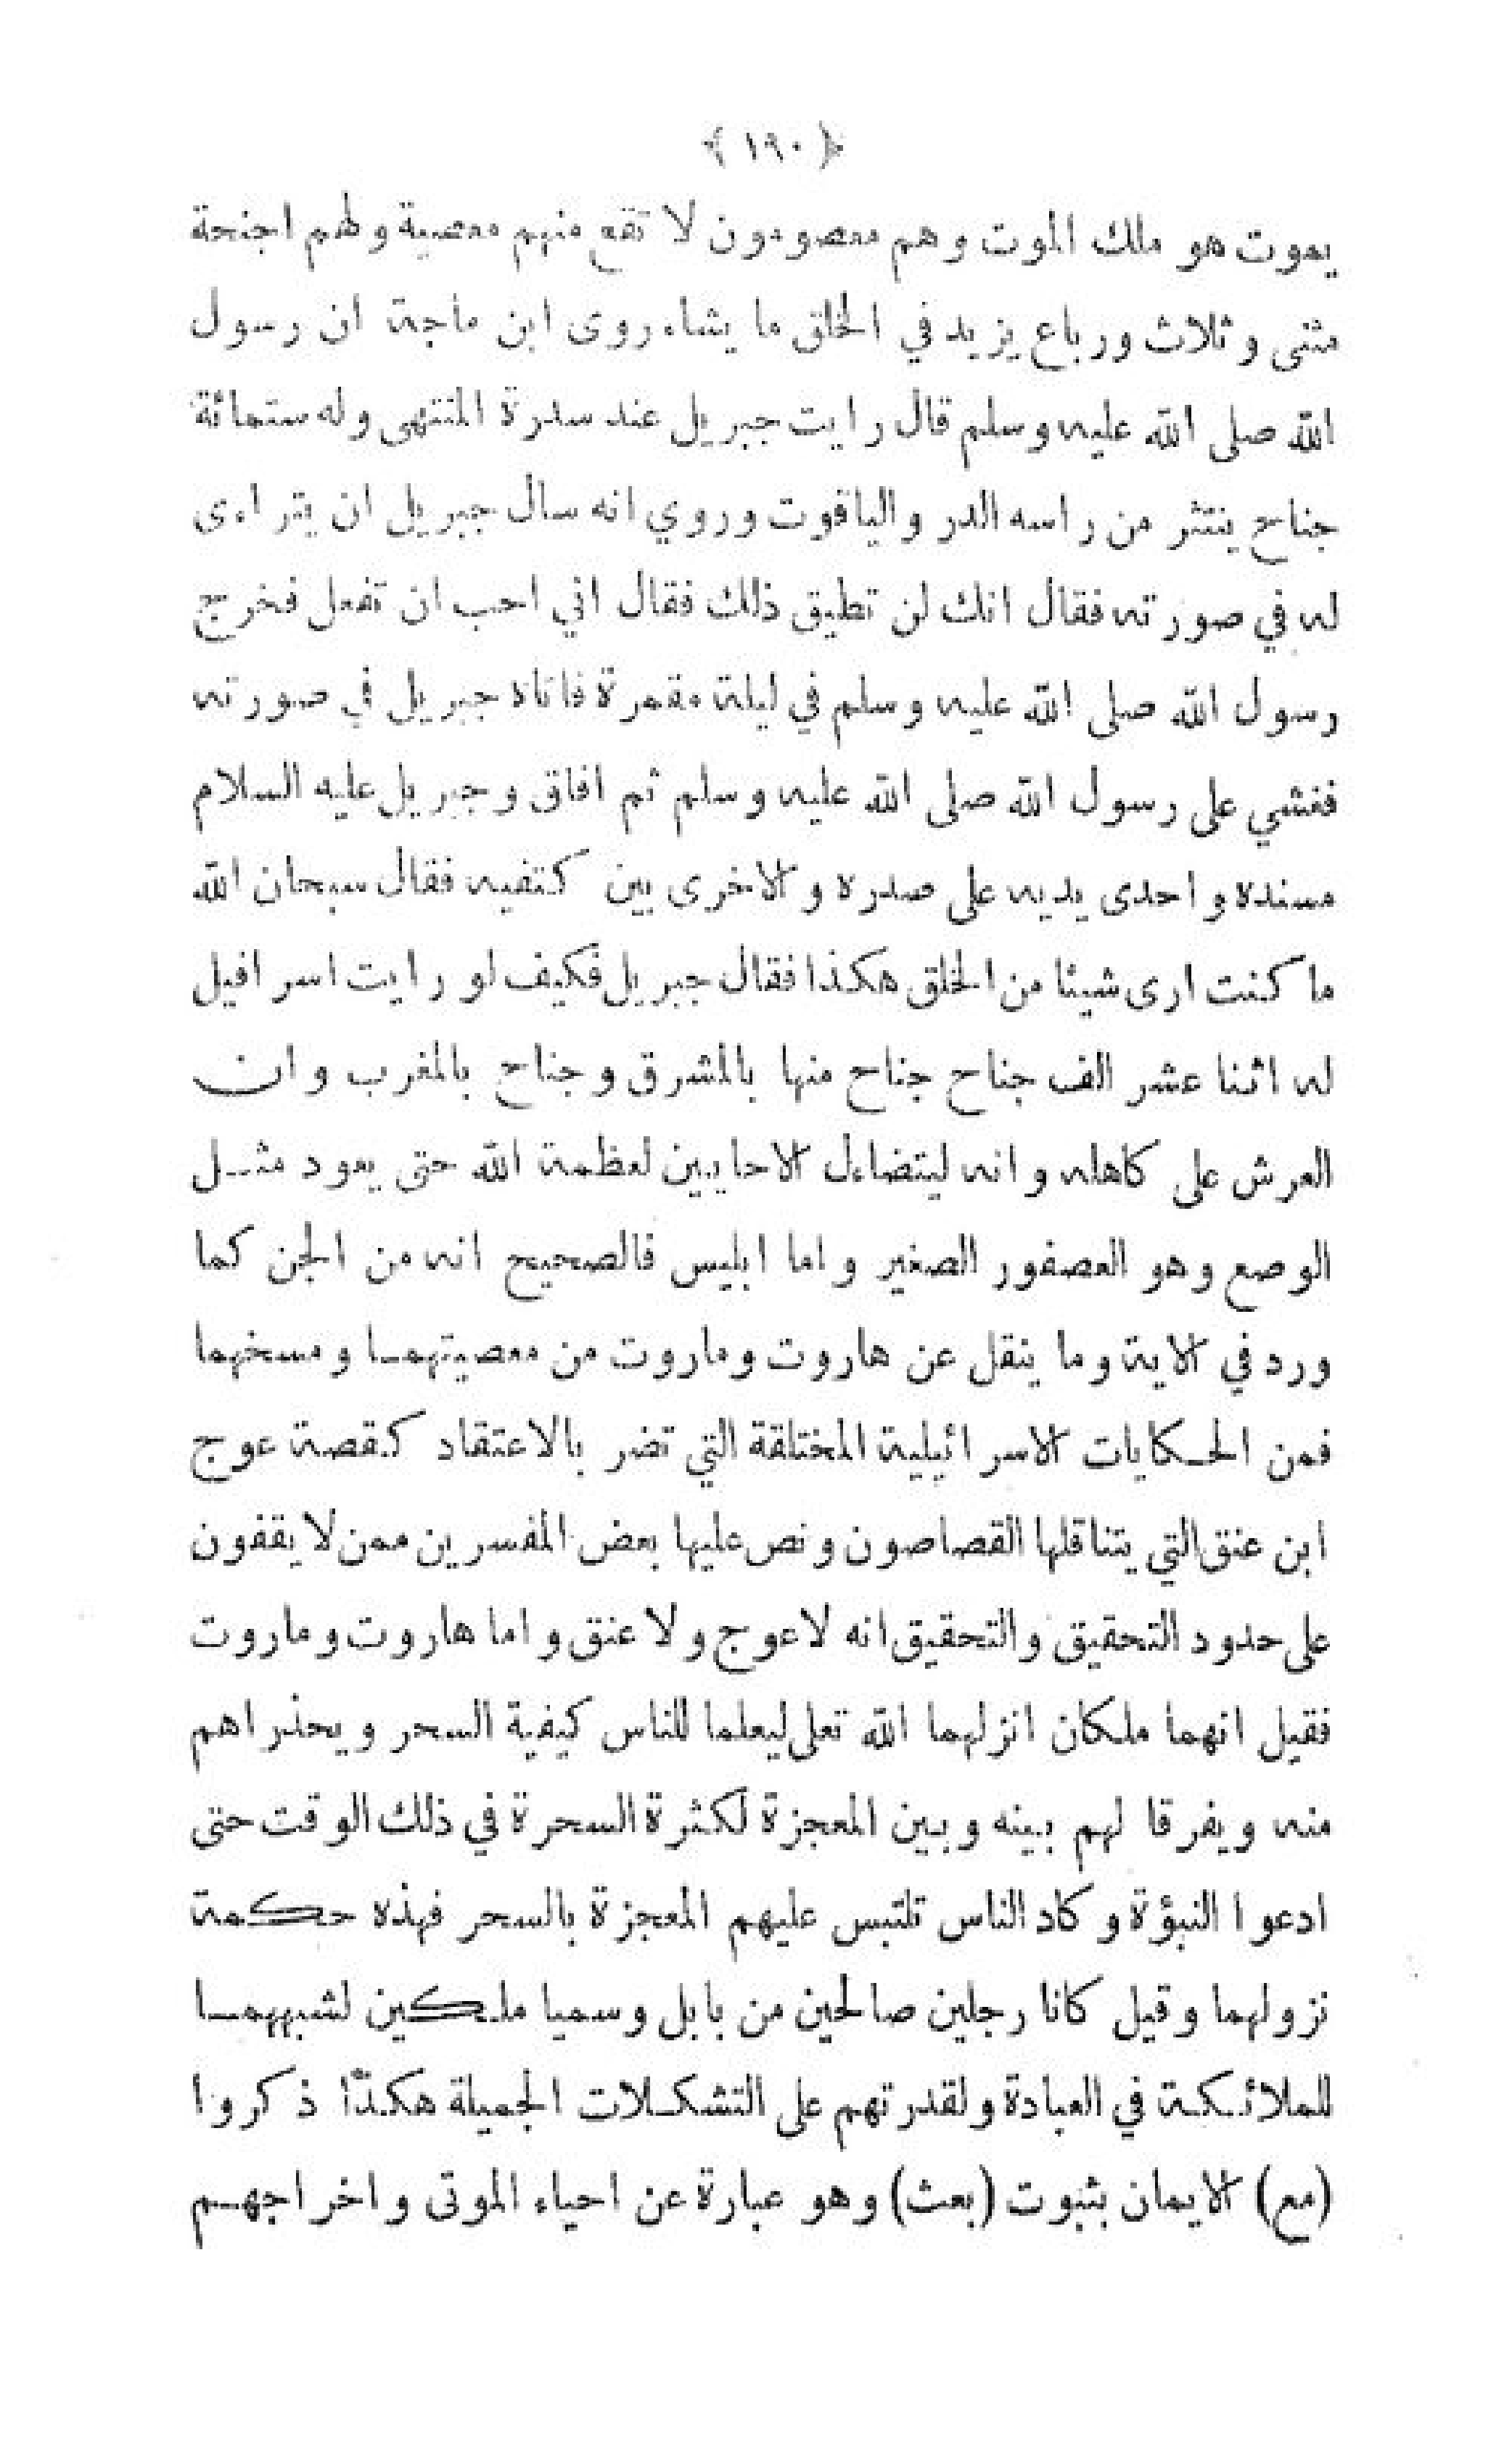 ﴿ ١٩٠ ﴾
يموت هو ملك الموت وهم معصومون لا تقع منهم معصية ولهم اجنحة
مثنى وثلاث ورباع يزيد في الخلق ما يشاء روى ابن ماجة ان رسول
الله صلى الله عليه وسلم قال رايت جبريل عند سدرة المنتهى وله ستمائة
جناح ينتثر من راسه الدر والياقوت وروي انه سال جبريل ان يتراءى
له في صورته فقال انك لن تطيق ذلك فقال اني احب ان تفعل فخرج
رسول الله صلى الله عليه وسلم في ليلة مقمرة فاتاه جبريل في صورته
فغشي على رسول الله صلى الله عليه وسلم ثم افاق وجبريل عليه السلام
مسنده واحدى يديه على صدره والاخرى بين كتفيه فقال سبحان الله
ما كنت ارى شيئا من الخلق هكذا فقال جبريل فكيف لو رايت اسرافيل
له اثنا عشر الف جناح جناح منها بالمشرق وجناح بالمغرب وان
العرش على كاهله وانه ليتضاءل الاحايين لعظمة الله حتى يعود مثل
الوصع وهو العصفور الصغير واما ابليس فالصحيح انه من الجن كما
ورد في الاية وما ينقل عن هاروت وماروت من معصيتهما ومسخهما
فمن الحكايات الاسرائيلية المختلقة التي تضر بالاعتقاد كقصة عوج
ابن عنق التي يتناقلها القصاصون ونص عليها بعض المفسرين ممن لا يقفون
على حدود التحقيق والتحقيق انه لا عوج ولا عنق واما هاروت وماروت
فقيل انهما ملكان انزلهما الله تعلى ليعلما للناس كيفية السحر ويحذراهم
منه ويفرقا لهم بينه وبين المعجزة لكثرة السحرة في ذلك الوقت حتى
ادعوا النبؤة وكاد الناس تلتبس عليهم المعجزة بالسحر فهذه حكمة
نزولهما وقيل كانا رجلين صالحين من بابل وسميا ملكين لشبههما
للملائكة في العبادة ولقدرتهم على التشكلات الجميلة هكذا ذكروا
(مع) الايمان بثبوت (بعث) وهو عبارة عن احياء الموتى واخراجهم